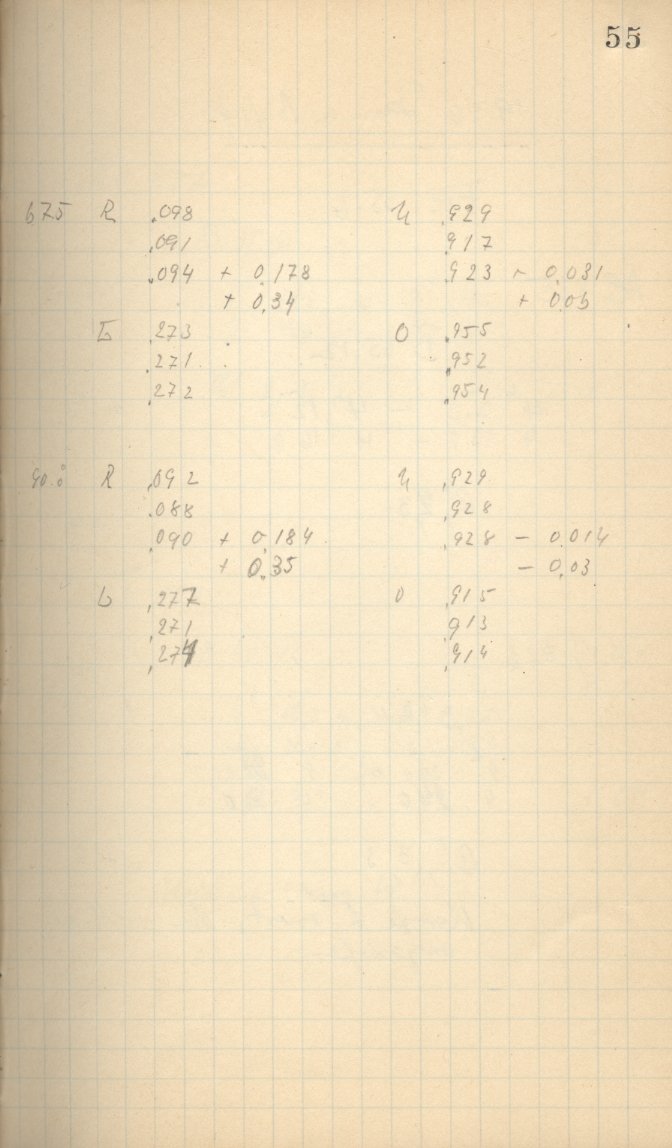 55
67.5 R ,098 U ,929
,091 ,917
,094 + 0,178 ,923 - 0,031
+ 0,34 + 0,05
L ,273 O ,955
,271 ,952
,272 ,954
90.0 R ,092 U ,929
,088 ,928
,090 + 0,184 ,928 - 0,014
+ 0,35 - 0,03
L ,277 O ,915
,271 ,913
,274 ,914